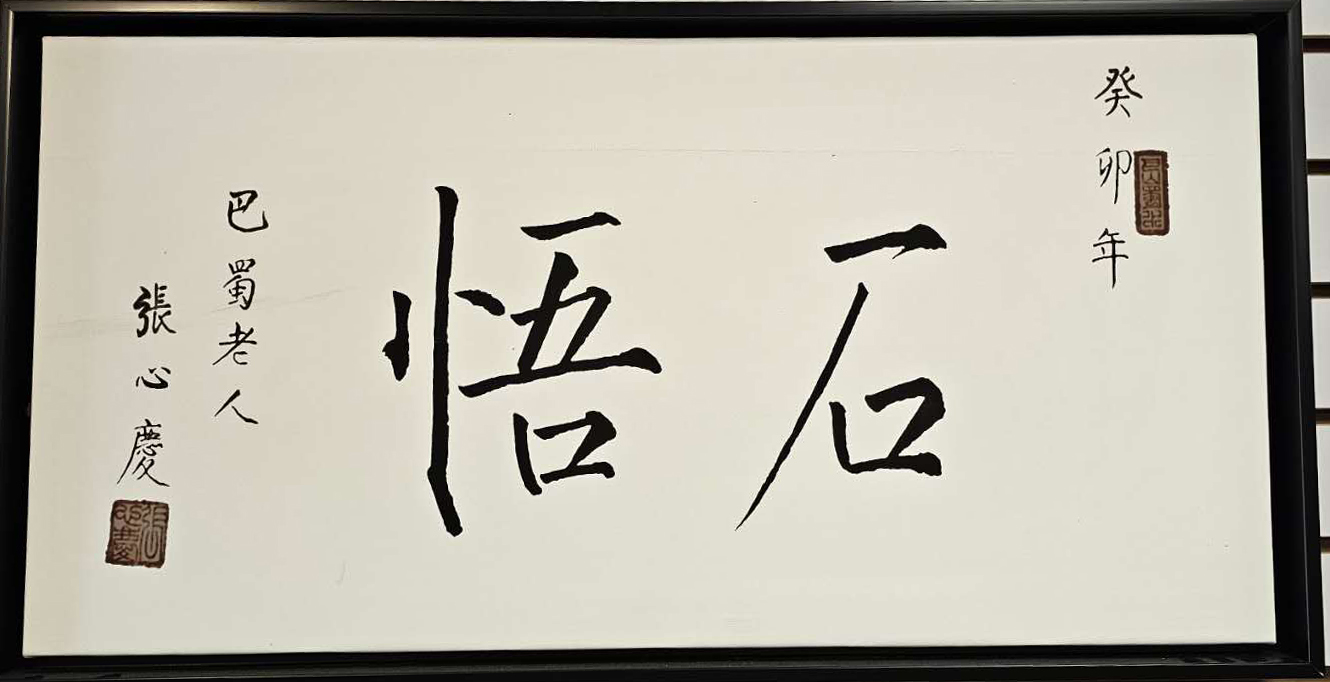 癸卯年
石悟
巴蜀老人
張心慶
張心慶